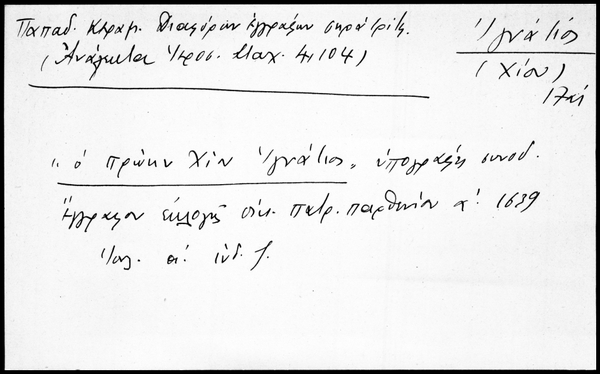 Παπαδ. Κεραμ. Διαφόρων ἐγγράφων σειρὰ τρίτ.
(Ἀνάλεκτα Ἱεροσ. Σταχ. 4, 104)
Ἰγνάτιος
(Χίου)
17αι
"ὁ πρώην Χίου Ἰγνάτιος" ὑπογραφεὺς συνοδ.
Ἔγγραφον ἐκλογῆς οἰκ. πατρ. Παρθενίου α΄. 1639
Ἰουλ. α΄. ἰνδ. ζ.